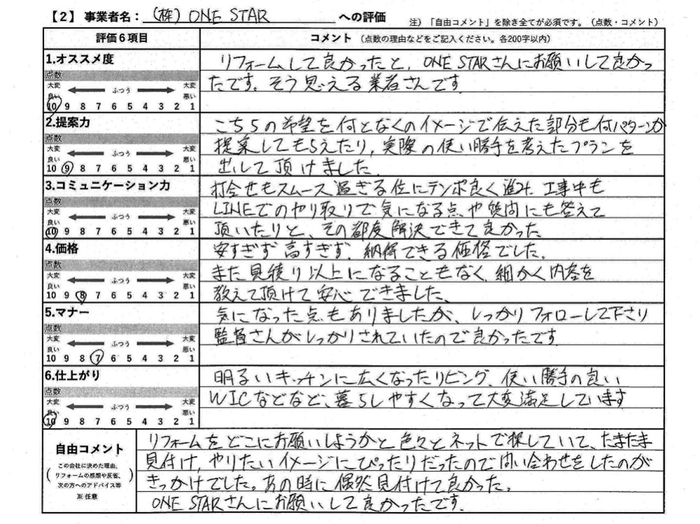 【2】事業者名：（株）ONE STAR への評価
注）「自由コメント」を除き全てが必須です。（点数・コメント）
評価6項目
コメント（点数の理由などをご記入ください。各200字以内）
1.オススメ度
点数
大変良い ふつう 大変悪い
10 9 8 7 6 5 4 3 2 1
リフォームして良かったと、ONE STARさんにお願いして良かっ
たです。そう思える業者さんです。
2.提案力
点数
大変良い ふつう 大変悪い
10 9 8 7 6 5 4 3 2 1
こちらの希望を何となくのイメージで伝えた部分も何パターンか
提案してもらえたり、実際の使い勝手を考えたプランを
出して頂けました。
3.コミュニケーション力
点数
大変良い ふつう 大変悪い
10 9 8 7 6 5 4 3 2 1
打合せもスムーズ過ぎる位にテンポ良く進み、工事中も
LINEでのやり取りで気になる点や質問にも答えて
頂いたりと、その都度解決できて良かった
4.価格
点数
大変良い ふつう 大変悪い
10 9 8 7 6 5 4 3 2 1
安すぎず高すぎず、納得できる価格でした。
また見積り以上になることもなく、細かく内容を
教えて頂けて安心できました。
5.マナー
点数
大変良い ふつう 大変悪い
10 9 8 7 6 5 4 3 2 1
気になった点もありましたが、しっかりフォローして下さり
監督さんがしっかりされていたので良かったです。
6.仕上がり
点数
大変良い ふつう 大変悪い
10 9 8 7 6 5 4 3 2 1
明るいキッチンに広くなったリビング、使い勝手の良い
WICなどなど、暮らしやすくなって大変満足しています
自由コメント
（この会社に決めた理由、
リフォームの感想や反省、
次の方へのアドバイス等）
※任意
リフォームをどこにお願いしようかと色々とネットで探していて、たまたま
見付け、やりたいイメージにぴったりだったので問い合わせをしたのが
きっかけでした。あの時に偶然見付けて良かった。
ONE STARさんにお願いして良かったです。